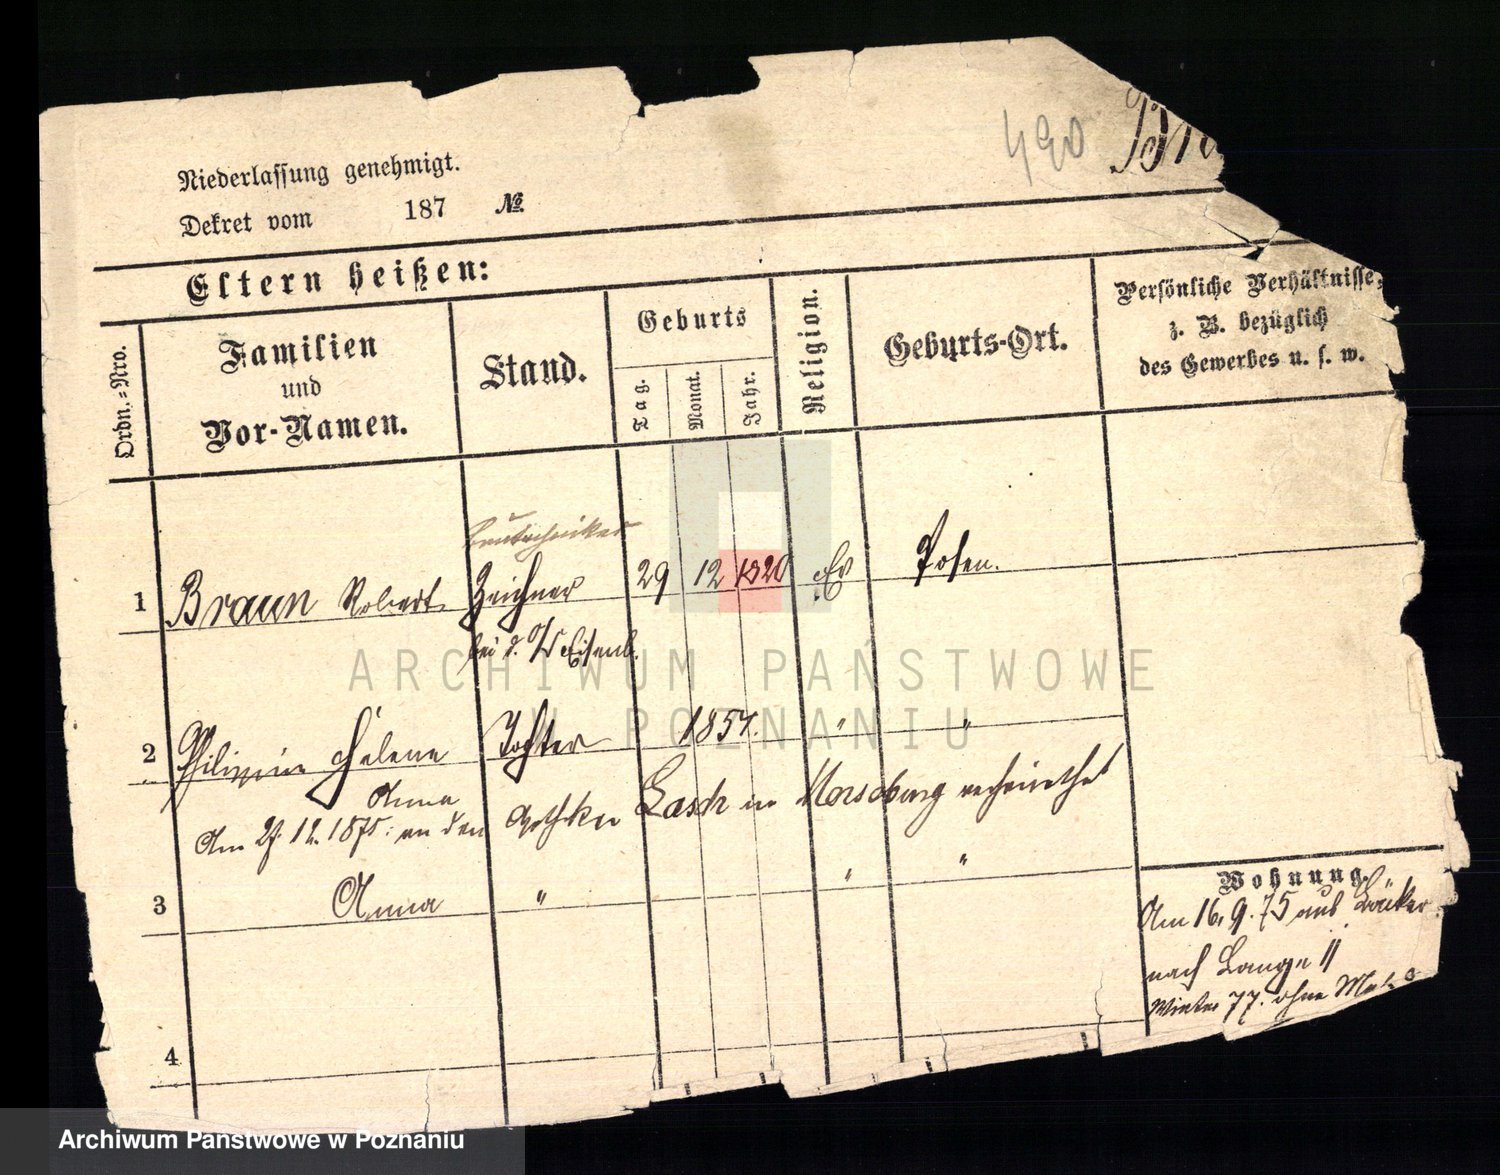 490 Bra
Niederlassung genehmigt.
Dekret vom 187 №.
Eltern heißen:
Ordn.-Nro.
Familien
und
Vor-Namen.
Stand.
Geburts
Tag.
Monat.
Jahr.
Religion.
Geburts-Ort.
Persönliche Verhältnisse,
z. B. bezüglich
des Gewerbes u. s. w.
1 Braun Robert Zeichner 29 12 1820 Ev Posen.
bei d. O/S Eisenb.
2 Philippine Helene Tochter 1857. " "
Anna
Am 27. 12. 1875. an den Lasch in Merseburg verheirathet
3 Anna " " "
4
Wohnung.
Am 16. 9. 75 aus Bäcker
nach Lange 11
Winter 77. ohne
ARCHIWUM PAŃSTWOWE
W POZNANIU
Archiwum Państwowe w Poznaniu